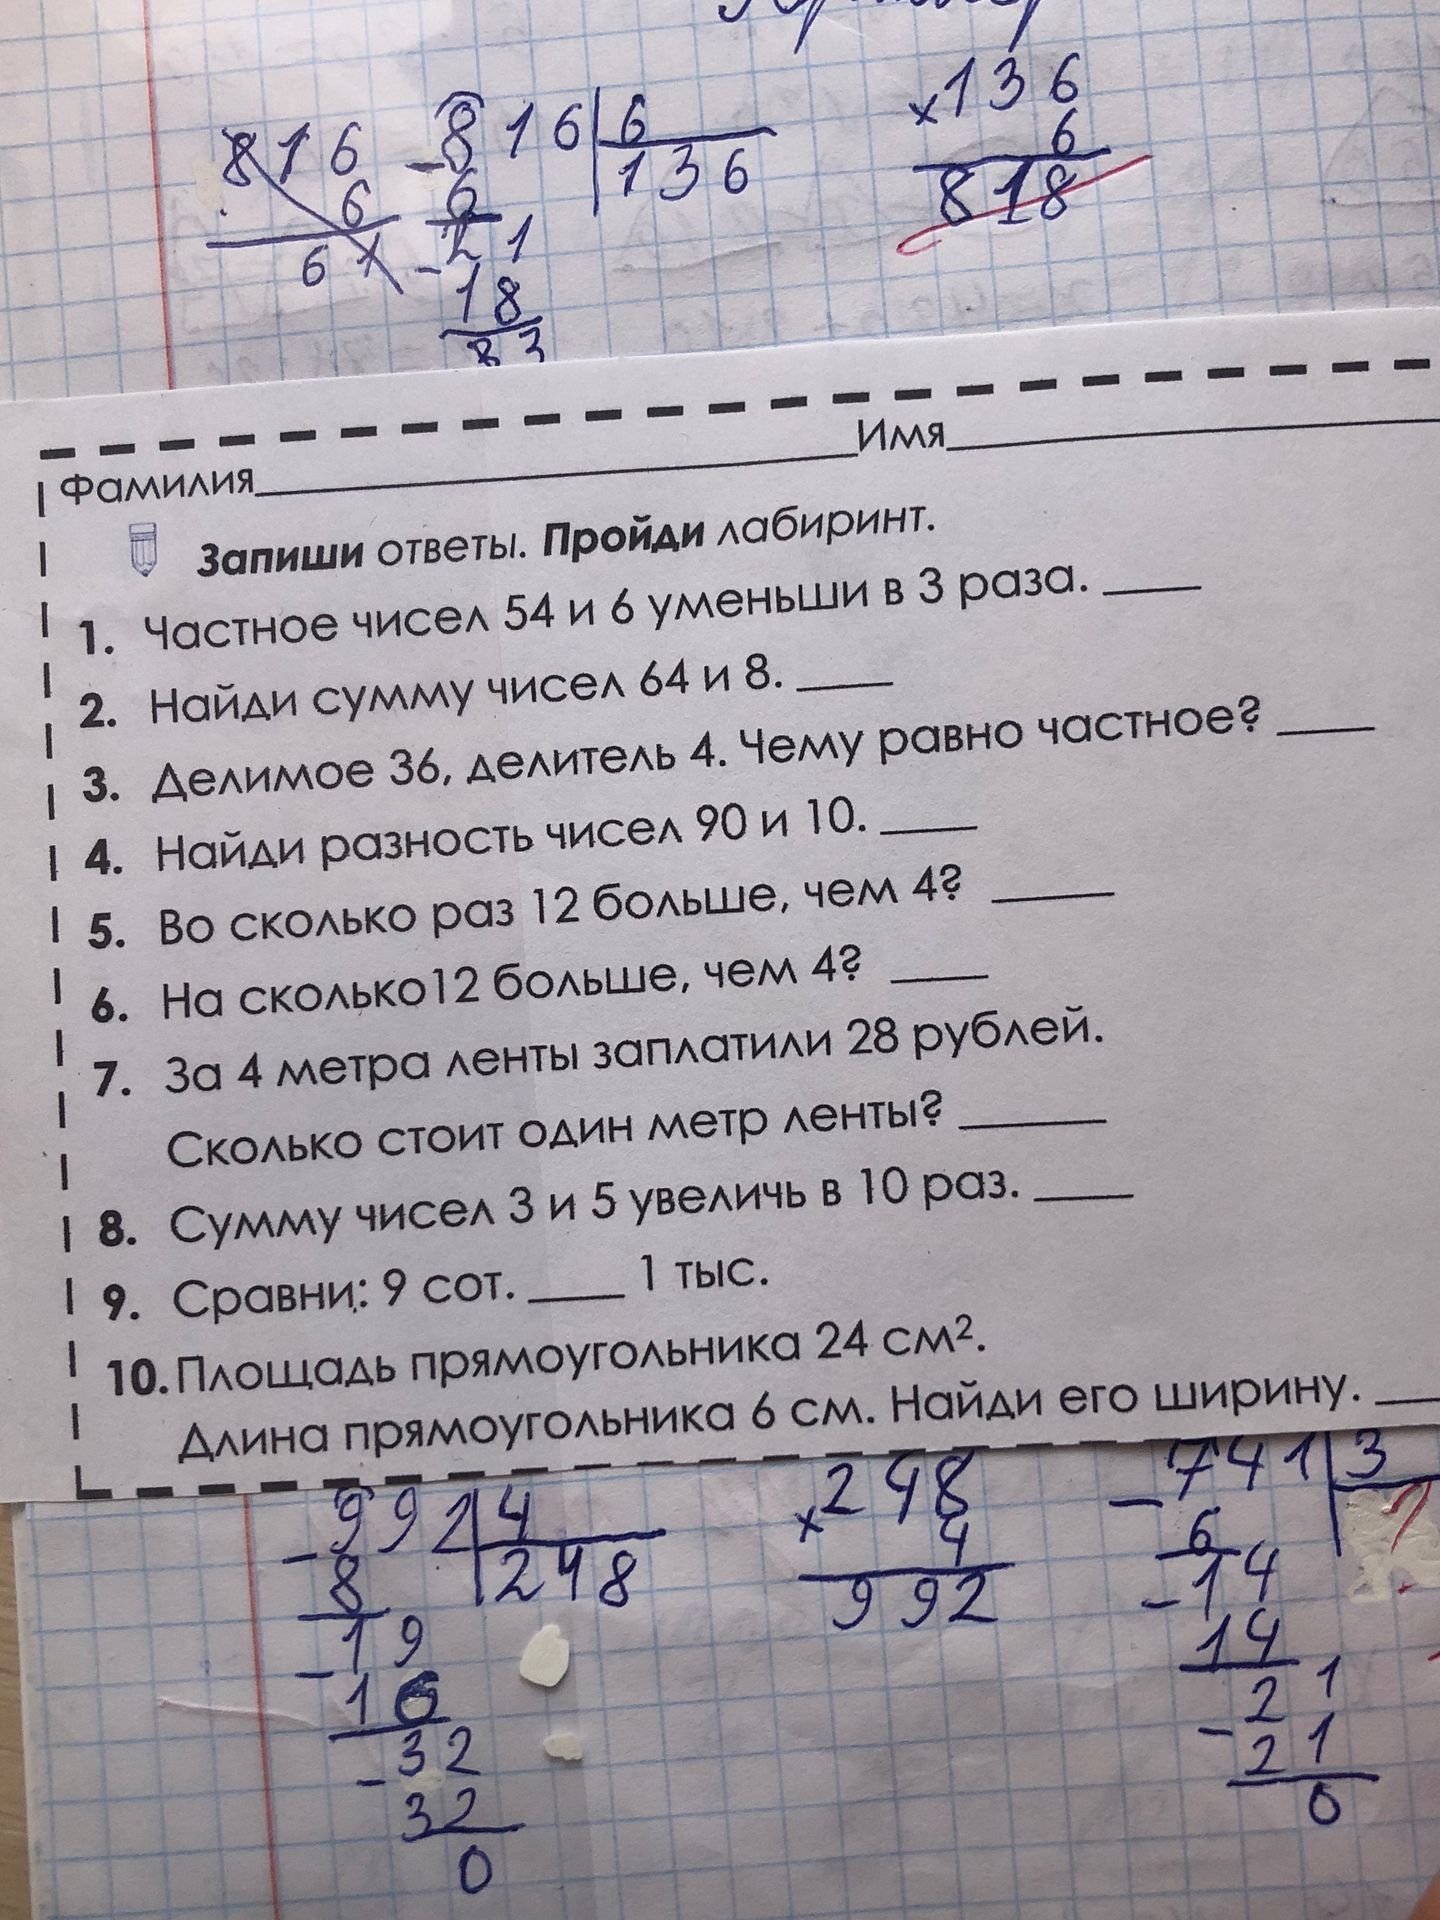 816 - 816 | 6
6 6 136
6
- 21
18
× 136
6
818
Фамилия Имя
Запиши ответы. Пройди лабиринт.
1. Частное чисел 54 и 6 уменьши в 3 раза.
2. Найди сумму чисел 64 и 8.
3. Делимое 36, делитель 4. Чему равно частное?
4. Найди разность чисел 90 и 10.
5. Во сколько раз 12 больше, чем 4?
6. На сколько12 больше, чем 4?
7. За 4 метра ленты заплатили 28 рублей.
Сколько стоит один метр ленты?
8. Сумму чисел 3 и 5 увеличь в 10 раз.
9. Сравни: 9 сот. 1 тыс.
10. Площадь прямоугольника 24 см².
Длина прямоугольника 6 см. Найди его ширину.
- 992 | 4
8 248
- 19
16
- 32
32
0
× 248
4
992
- 741 | 3
6
- 14
14
- 21
21
0